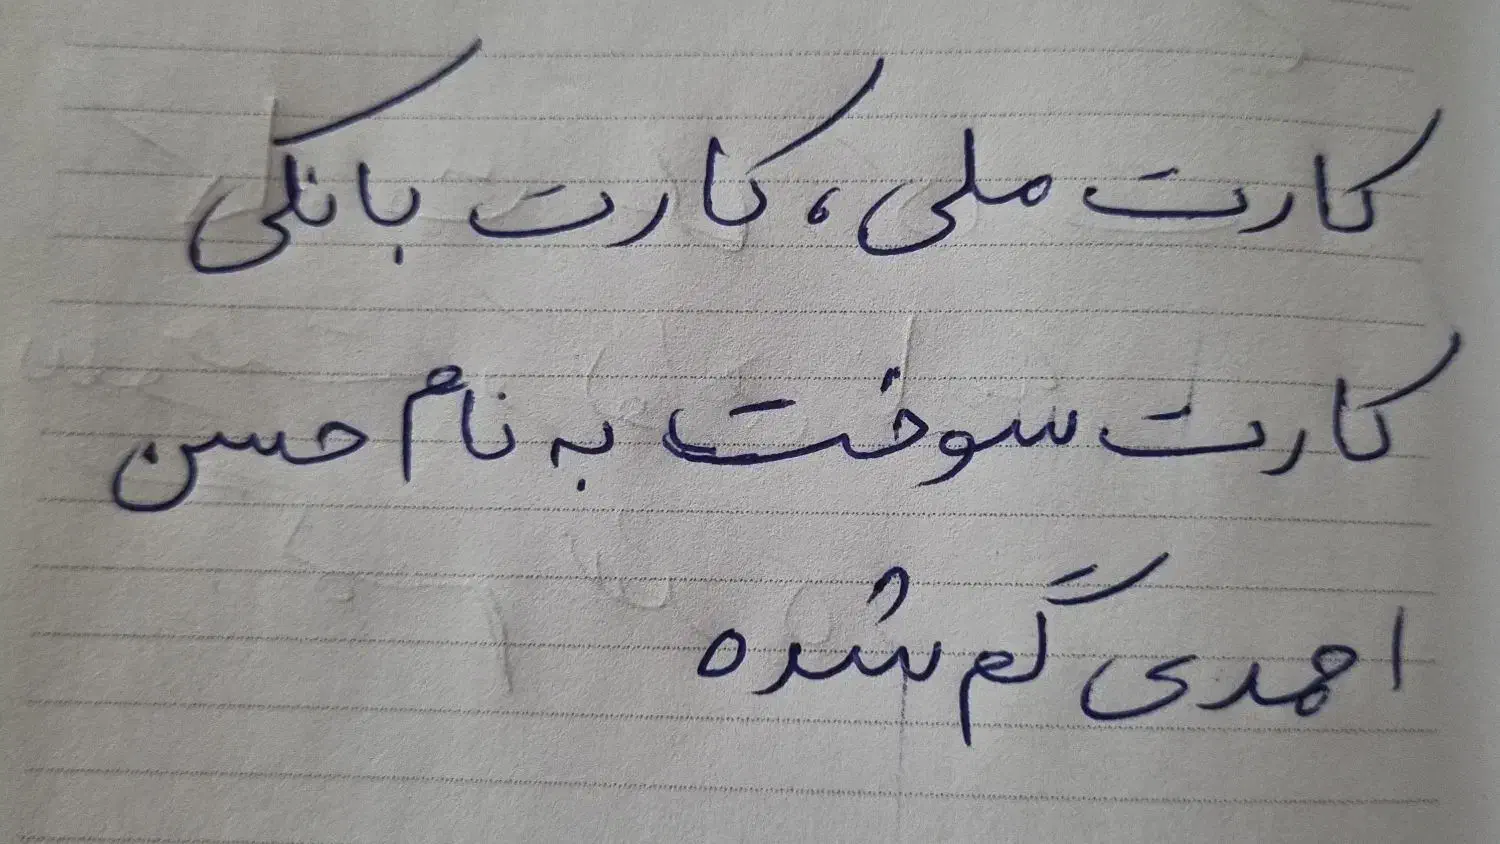 کارت ملی، کارت بانکی
کارت سوخت به نام حسن
احمدی گم شده